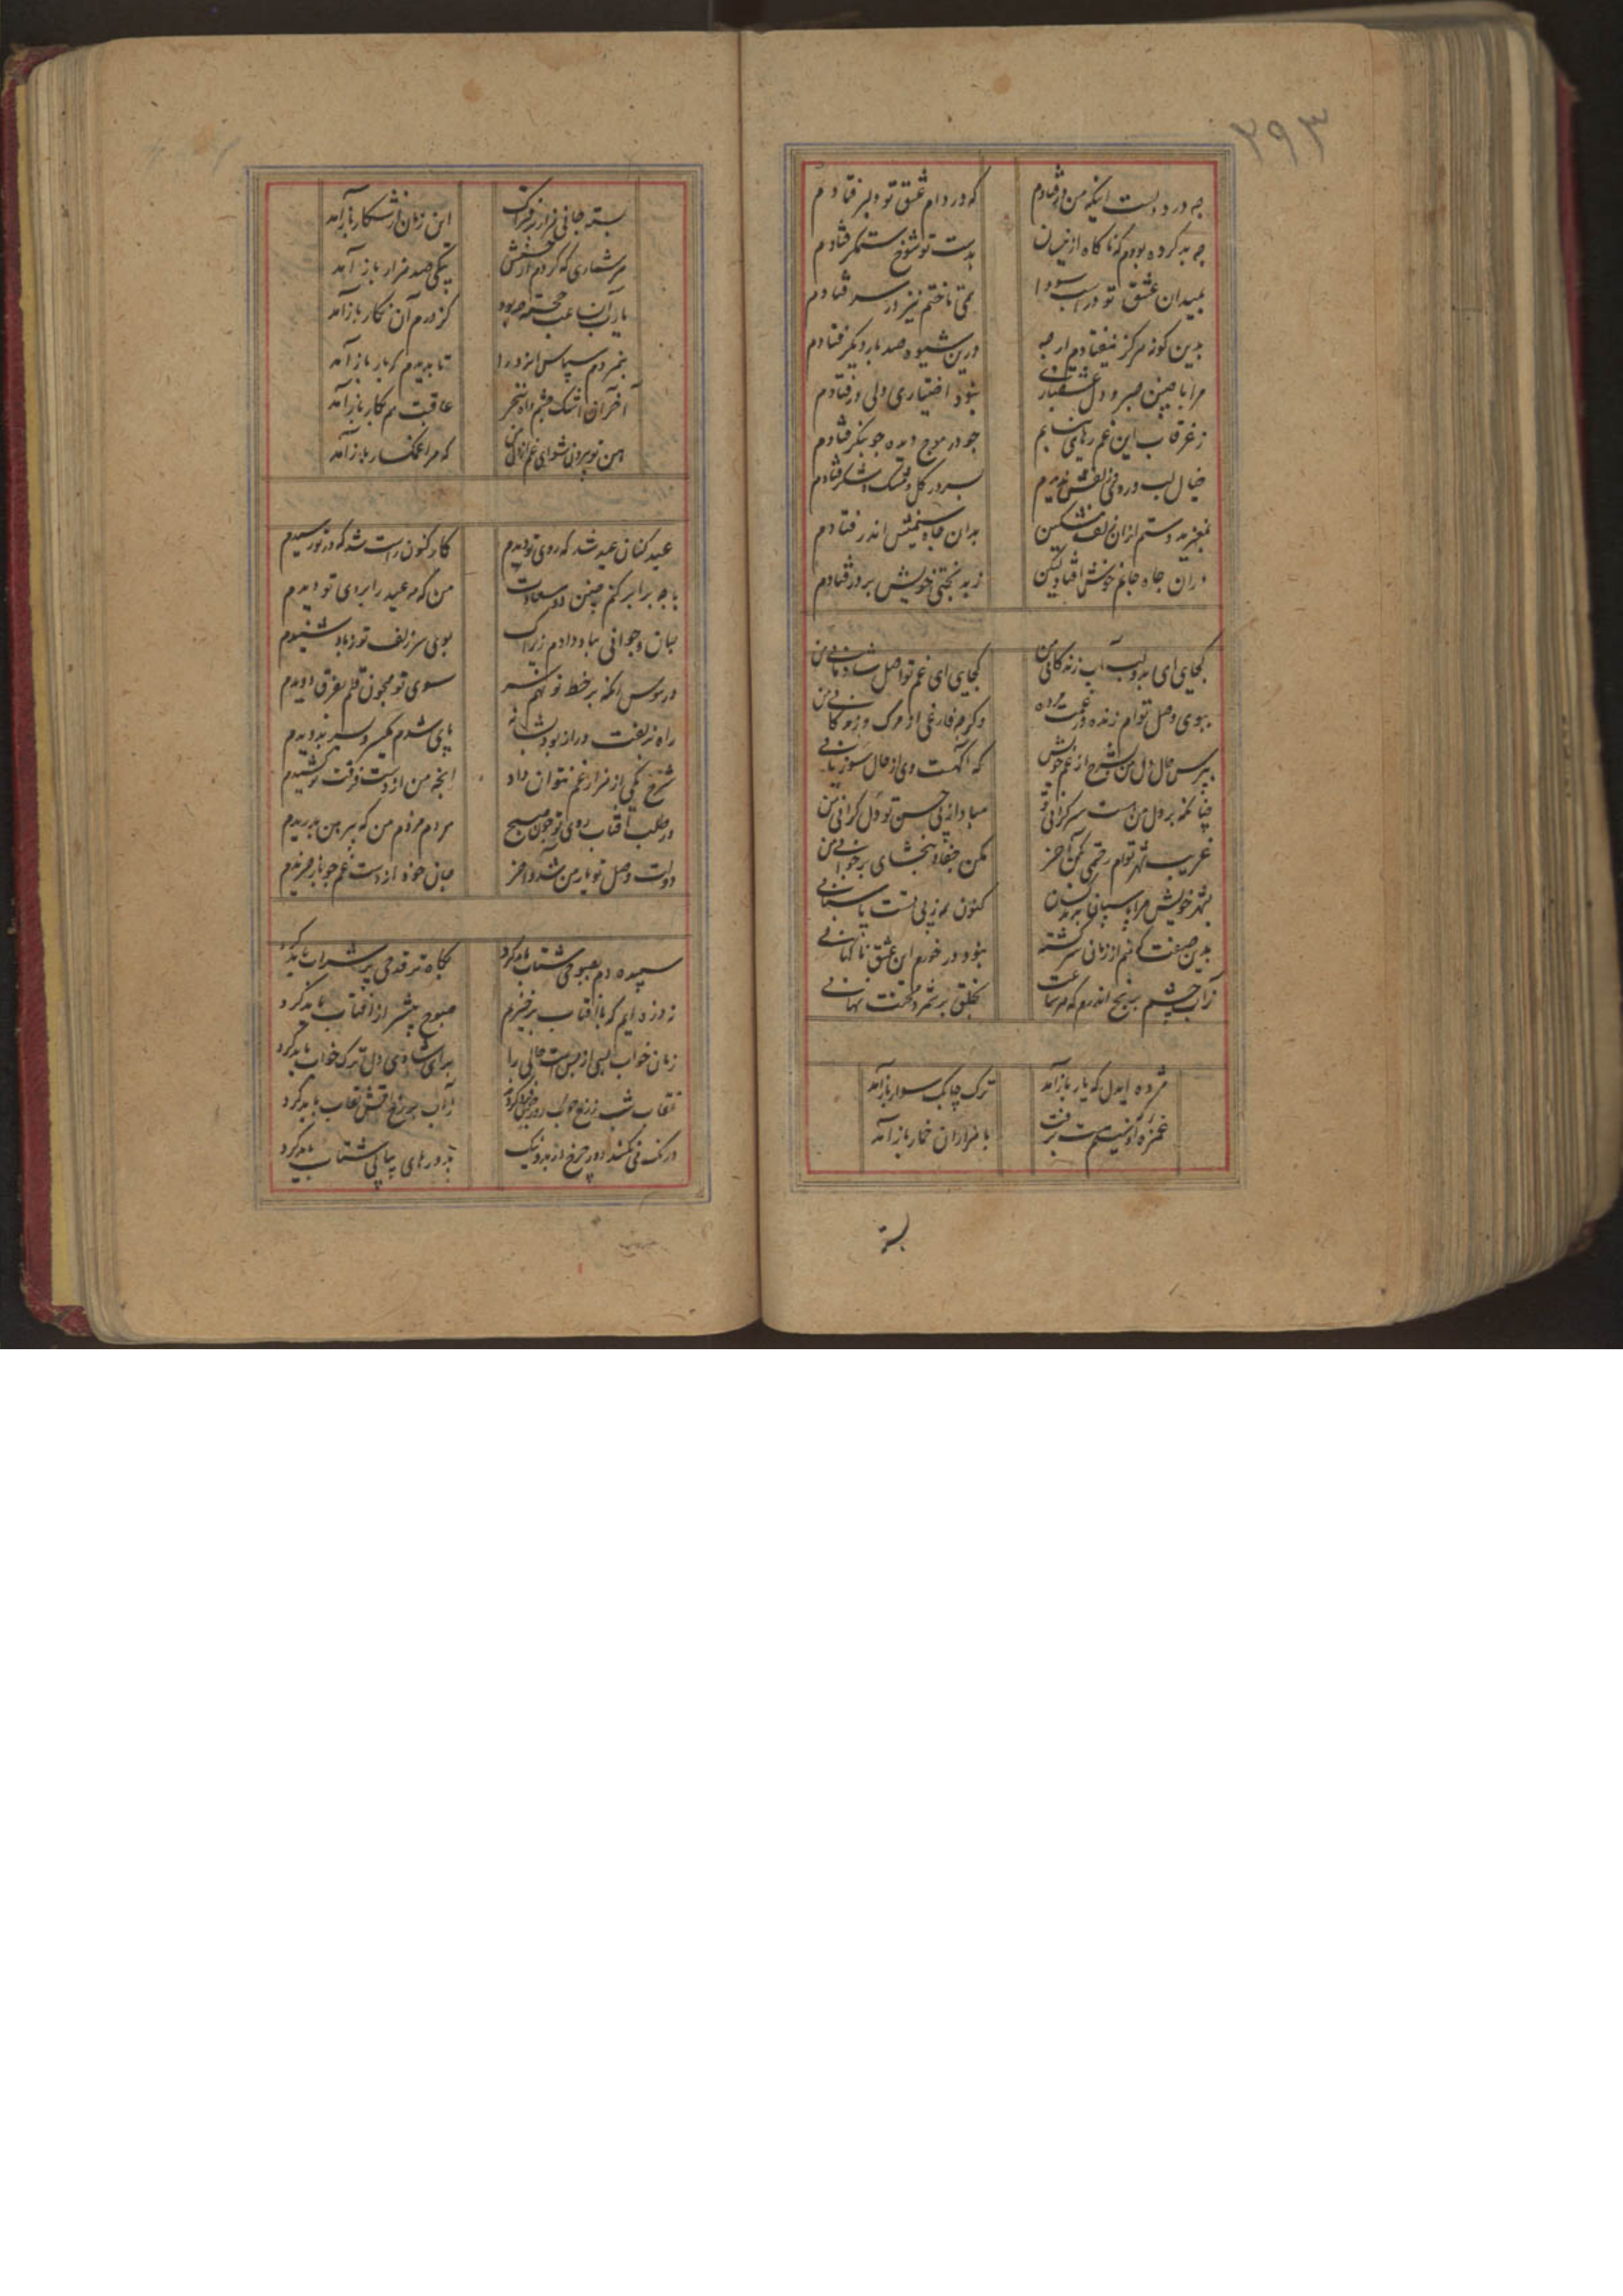 ۲۹۳
چه در دست اینکه من در فتادم که در دام عشق تو دلبر فتادم
چه بد کرده بودم که ناکاه از نیسان بدست تو شوخ ستمکر فتادم
بمیدان عشق تو در اسب سودا همی تاختم تیز در سر فتادم
بدین کونه هرکز نیفتادم ارچه درین شیوه صد بار دیکر فتادم
مرا با چنین صبر و دل عشقبازی نبود اختیاری ولی در فتادم
ز غرقاب این غم رهای نیابم چو در موج دیده جو بنکر فتادم
خیال لب و روی زلفش ندیدم بسر در کل و مشک و شکر فتادم
بعنبر مد دستم ازان زلف مشکین بدان چاه سیمینش اندر فتادم
دران چاه جانم خوش افتاد لیکن ز بدبختی خویش بر در فتادم
کجای ای بدو لب آب زندکانی من کجای ای غم تو اصل شادمانی من
ببوی وصل توام زنده در غمت مرده وکرچه فارغی از مرک و زندکانی من
بپرس حال دل من شرح از غم خویش که آکهست وی از حال سوزیانی
چنانکه بر دل من هست سرکرانی تو مبادا از پی حسن تو دل کرانی من
غریب شهر توام رحمتی بکن آخر مکن جفا و ببخشای بر جوانی من
بشهر خویش مرا پاسبان کنون هر زپی تست پاسبانی
بدین صفت که منم از زمانی سرکشته نبود در خورم این عشق ناکهانی
ز آب چشم برنج اندرم که هر ساعت بخلق بر شمرد محنت نهانی
مژده ایدل که یار باز آمد ترک چابک سوار باز آمد
غمزه او نیم مست برفت با هزاران خمار باز آمد
بسته
بسته جانی هزار ز فتراک این زمان از شکار باز آمد
هر شماری که کردم از یکی صد هزار باز آمد
یارب آن ساعت خجسته چه بود کز درم آن نکار باز آمد
بنمردم سپاس ایزد را تا بدیدم که یار باز آمد
آخر آن اشک چشم و آه سحر عاقبت هم بکار باز آمد
هین تو بیرون شو ای غم از دل من که مرا غمکسار باز آمد
عید کنان عید شد که روی تو دیدم کار کنون راست شد که در تو رسیدم
با چه برابر کنم چنین دو سعادت من که مه عید را بروی تو دیدم
جان و جوانی بباد دادم زیراک بوی سر زلف تو ز باد شنیدم
در هوس آنکه بر خط تو نهم سر سوی تو همچون قلم بفرق دویدم
راه ز زلفت دراز بود بشانه پای شدم یکسر و بسر بدویدم
شرح یکی از هزار غم نتوان داد آنچه من از دست فرقت تو کشیدم
در طلب آفتاب روی تو چون صبح مردم مردم من که پیرهن بدریدم
دولت وصل تو یار من شد و آخر جان خود از دست غم جو باز خریدم
سپیده دم بصبوحی شتاب باید کرد نکاه تر قدحی پر شراب باید کرد
نه ذره ایم که با آفتاب برخیزم صبوح پیشتر از آفتاب باید کرد
زمان خواب بسی از پس است حالی را برای شادی دل ترک خواب باید کرد
نقاب شب ز رخ خوب روز بر فکند ز آب بر رخ آتش نقاب باید کرد
درنک می نکند دور چرخ از بد و نیک بدورهای پیاپی شتاب باید کرد